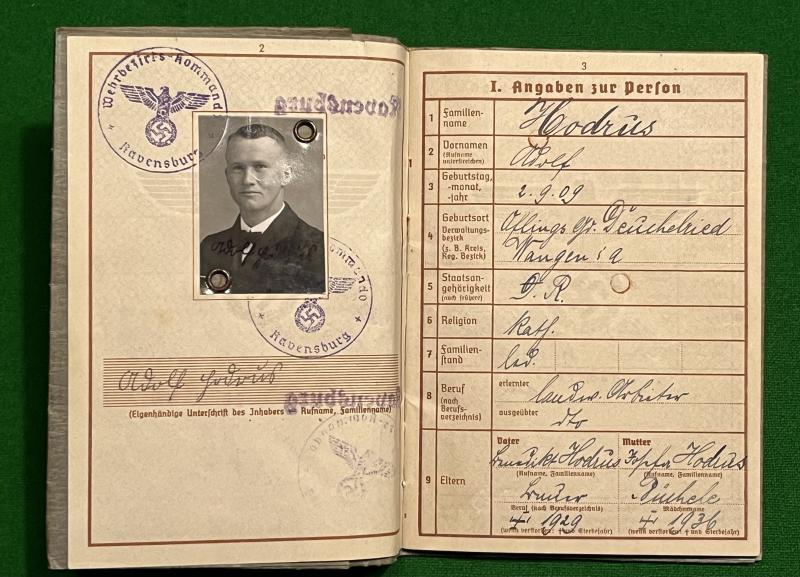 2
Wehrbezirks-Kommando
Ravensburg
Ravensburg
Ravensburg
Adolf Hodrus
(Eigenhändige Unterschrift des Inhabers Rufname, Familienname)
Ravensburg
3
I. Angaben zur Person
1 Familien-
name
Hodrus
2 Vornamen
(Rufname
unterstreichen)
Adolf
3 Geburtstag,
-monat,
-jahr
2.9.09
4 Geburtsort
Verwaltungs-
bezirk
(z. B. Kreis,
Reg. Bezirk)
Oflings Gd. Deuchelried
Wangen i a
5 Staatsan-
gehörigkeit
(auch frühere)
D. R.
6 Religion
kath.
7 Familien-
stand
led.
8 Beruf
(nach
Berufs-
verzeichnis)
erlernter
landw. Arbeiter
ausgeübter
dto
9 Eltern
Vater Mutter
Benedikt Hodrus Josefa Hodrus
(Rufname, Familienname) (Rufname, Familienname)
Bauer Büchele
Beruf (nach Berufsverzeichnis) Mädchenname
1929 1936
(wenn verstorben: † und Sterbejahr) (wenn verstorben: † und Sterbejahr)